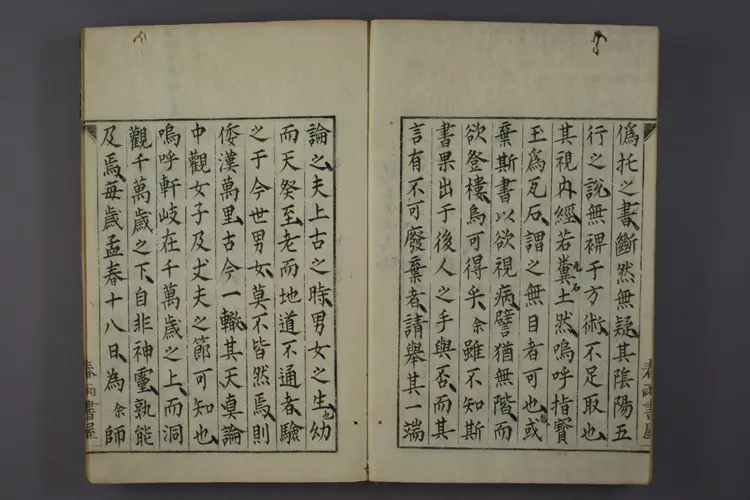 僞托之書斷然無疑其陰陽五
行之説無裨于方術不足取也
其視内經若糞土然嗚呼指寳
玉爲瓦石謂之無目者可也或
棄斯書以欲視病譬猶無階而
欲登樓烏可得乎余雖不知斯
書果出于後人之手與否而其
言有不可廢棄者請舉其一端
論之夫上古之時男女之生也幼
而天癸至老而地道不通者驗
之于今世男女莫不皆然焉則
倭漢萬里古今一轍其天真論
中觀女子及丈夫之節可知也
嗚呼軒岐在千萬歳之上而洞
觀千萬歳之下自非神靈孰能
及焉毎歳孟春十八日爲余師
春雨書屋